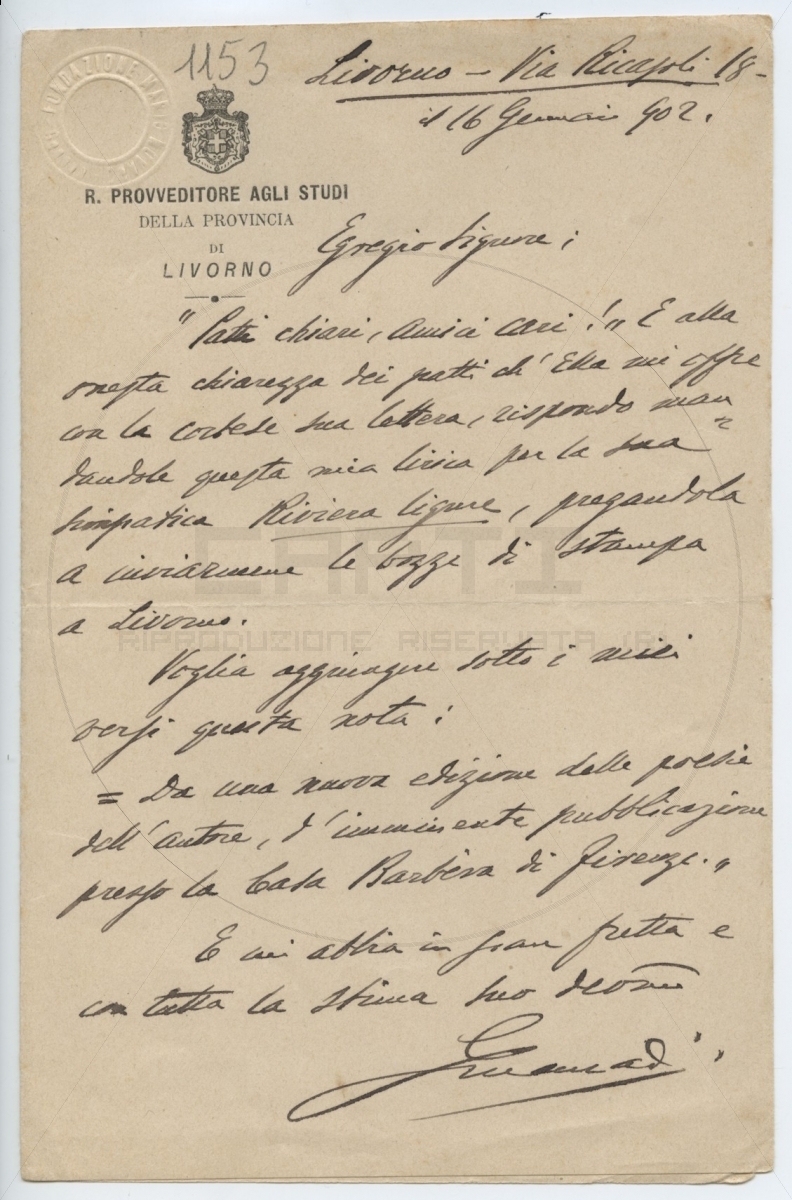 1153
Livorno – Via Ricasoli 18 –
il 16 Gennaio 902.
FONDAZIONE
R. PROVVEDITORE AGLI STUDI
DELLA PROVINCIA
DI
LIVORNO
Egregio Signore;
"Patti chiari, amici cari!„ E alla
onesta chiarezza dei patti ch'Ella mi offre
con la cortese sua lettera, rispondo man=
dandole questa mia lirica per la sua
simpatica Riviera ligure, pregandola
a inviarmene le bozze di stampa
a Livorno.
Voglia aggiungere sotto i miei
versi questa nota:
= Da una nuova edizione delle poesie
dell'autore, d'imminente pubblicazione
presso la Casa Barbèra di Firenze.„
E mi abbia in gran fretta e
con tutta la stima suo
CARTI
RIPRODUZIONE RISERVATA